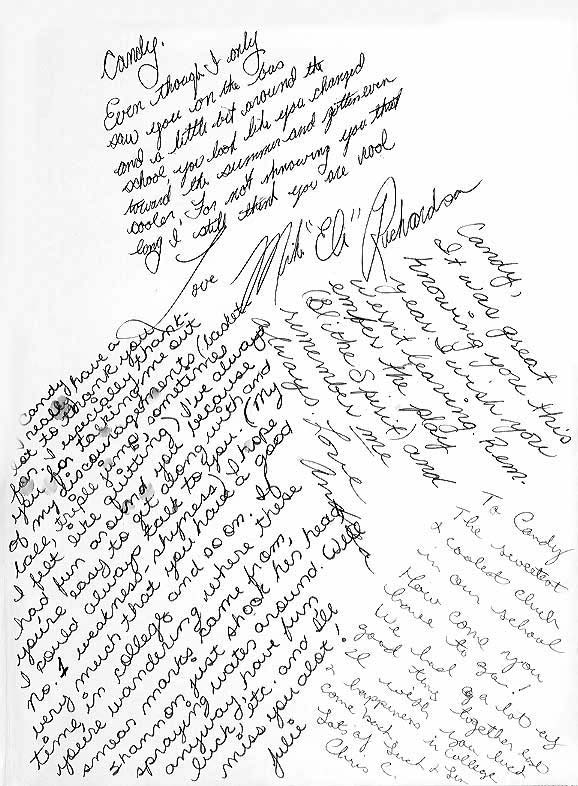 Candy,
Even though I only
saw you on the bus
and a little bit around the
school, you look like you changed
toward the summer and gotten even
cooler, For not knowing you that
long I still think you are kool
Love Mike "Eli" Richardson
Candy,
It was great
knowing you this
year. I wish you
weren't leaving. Rem-
ember the play
(Blithe Spirit) and
remember me
always.
Love
Andrea
Candy have a
I really
lot to thank you
for. I especially thank-
you for talking me out
of my discouragements (basket-
ball, triple jump, sometimes
I felt like quitting) I've always
had fun around you because
you're easy to get along with and
I could always talk to you. (My
no. 1 weakness- shyness) I hope
very much that you have a good
time in college and so on. If
you're wandering where these
smear marks came from,
Shannon just shook his head
spraying water around. Well
anyway, have fun
luck, etc. and I'll
miss you alot!
Julie
To Candy
The sweetest
& coolest chick
in our school
How come you
have to go!
We had a lot of
good times together but
I'll wish you luck
& happiness in college
Come back
Lots of Luck & Luv
Chris C.